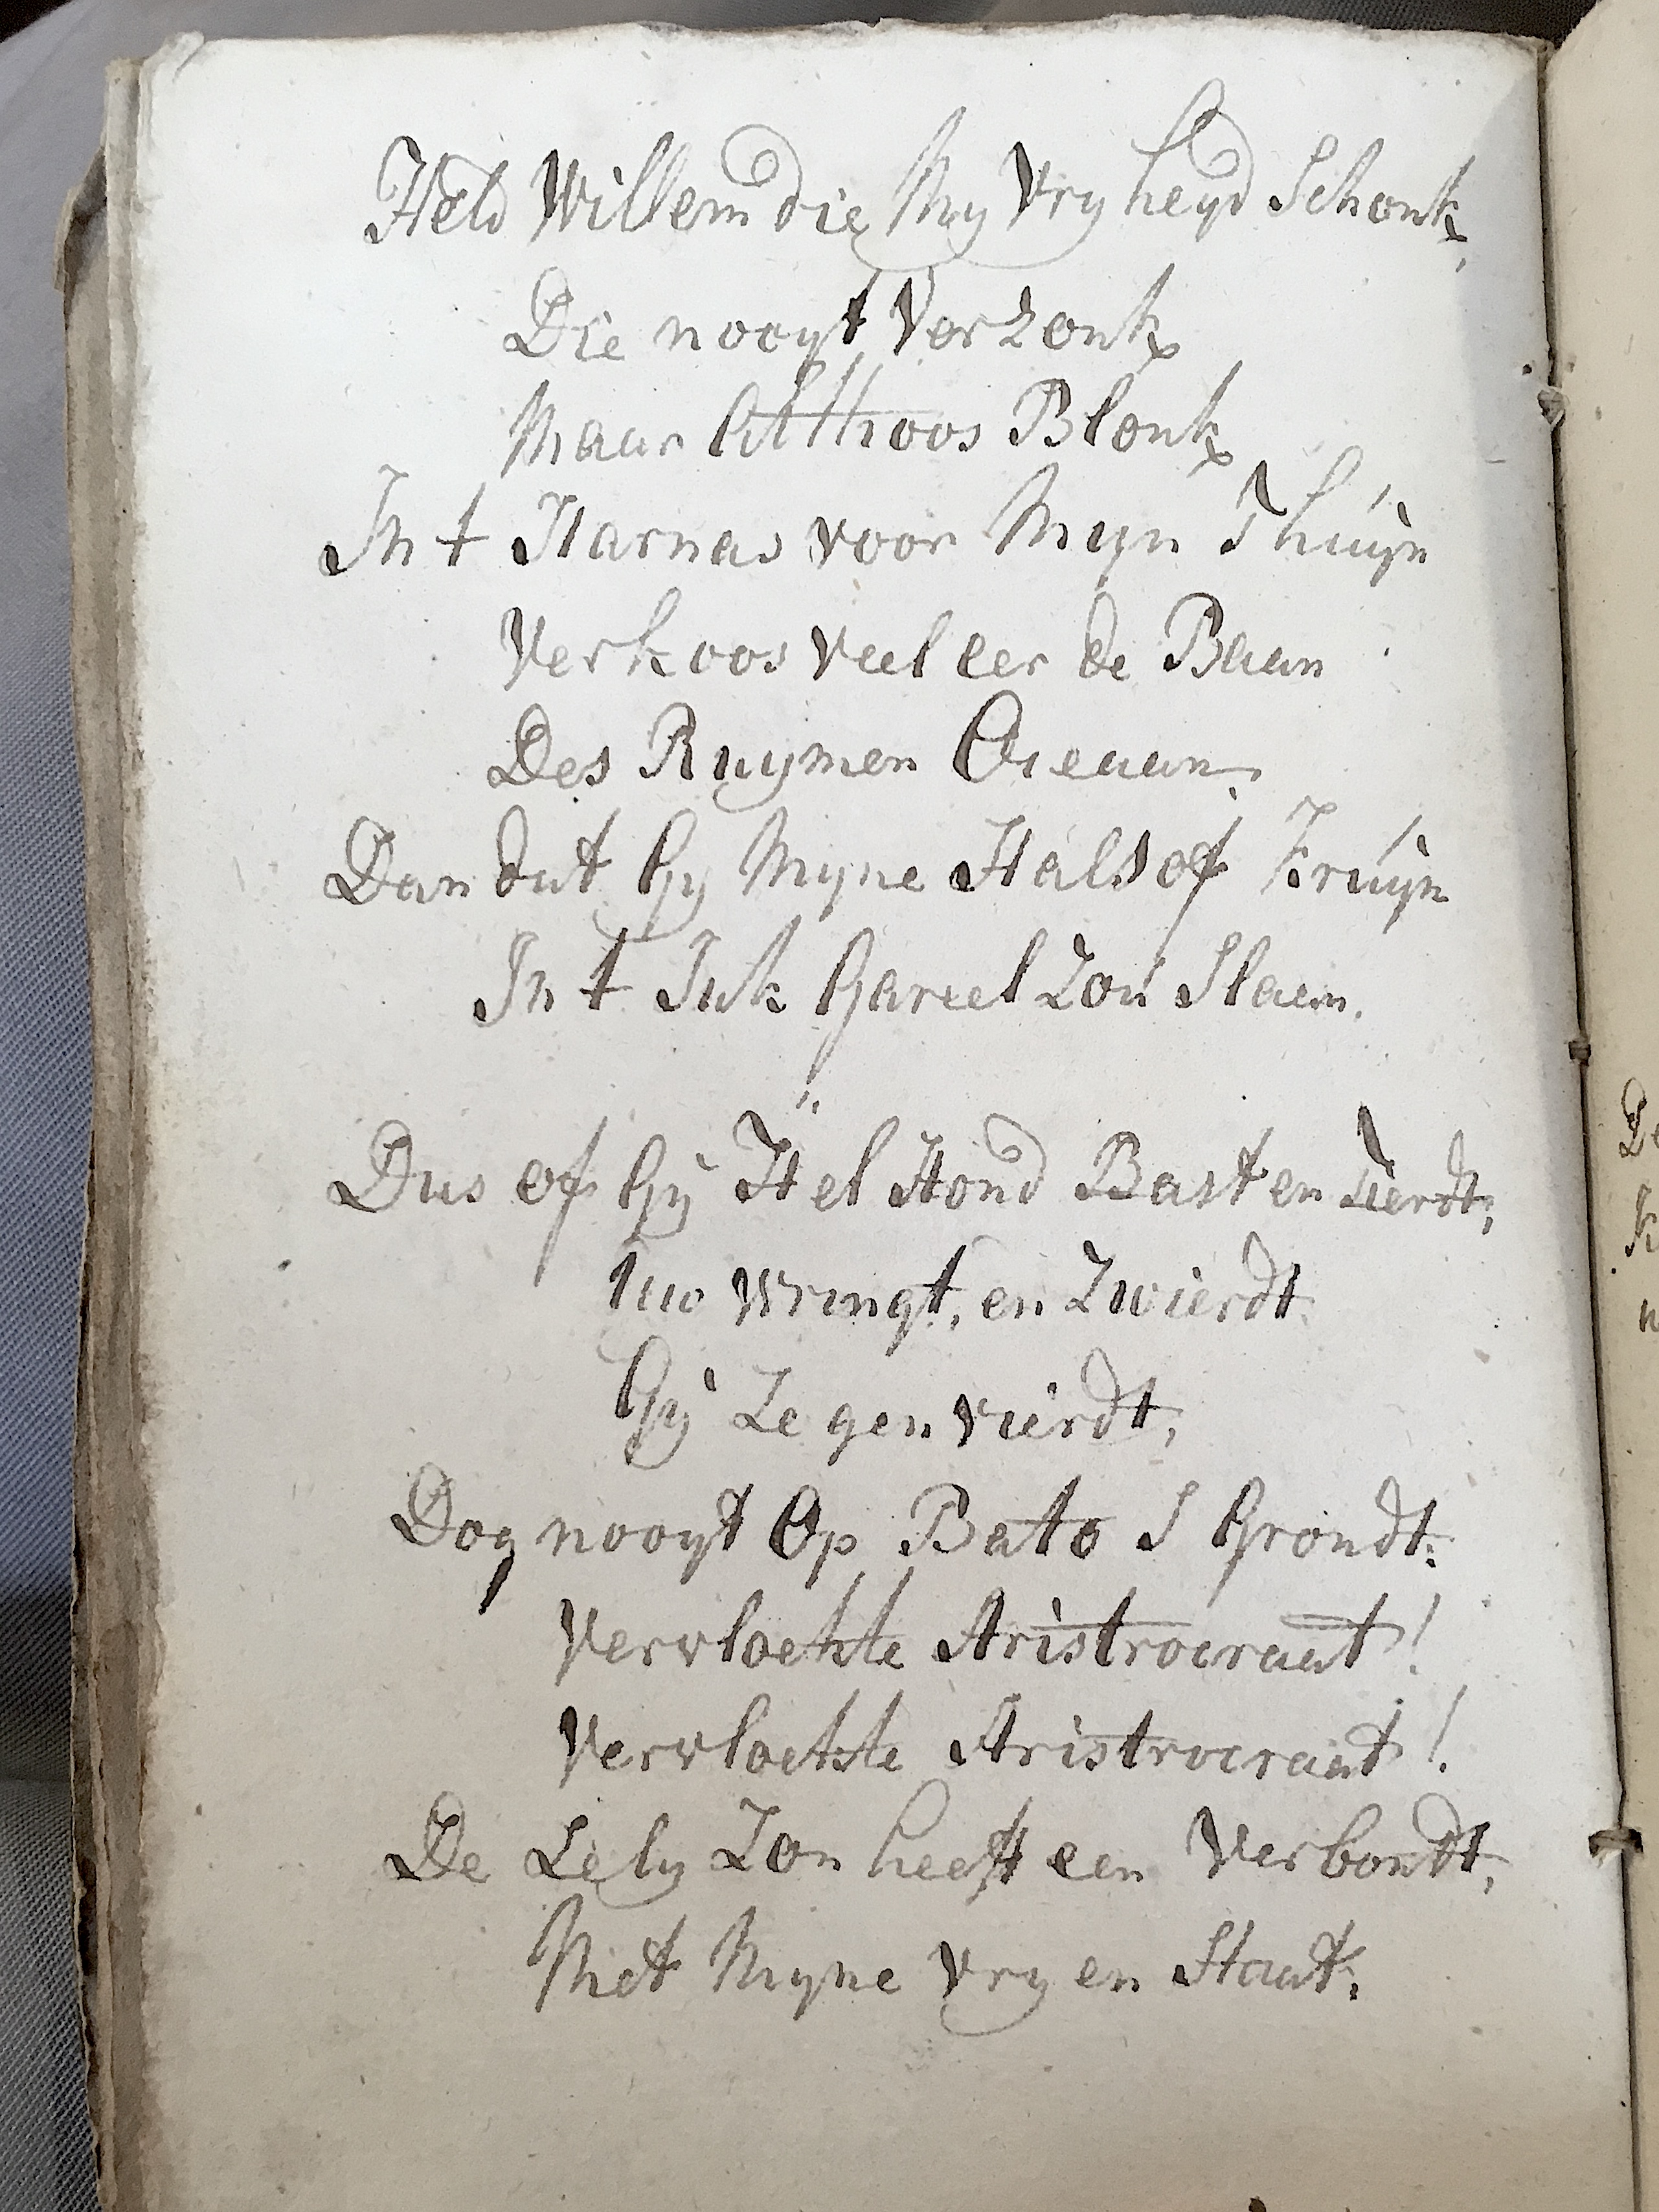 Held Willem die My Vryheyd Schonk,
Die nooyt Verzonk
Maar Althoos Blonk
In t Harnas voor Myn Thuyn
Verkoos veel eer de Baan
Des Ruymen Oceaan,
Dan dat Gy Myne Hals of Kruyn
In t Juk Gareel Zou Slaen.
Dus of Gÿ Hel Hond Bast en Tierdt,
Uw Wringt, en Zwierdt
Gÿ Zegenvierdt,
Dog nooyt Op Bato S Grondt:
Vervloekte Aristrocraat!
Vervloekte Aristrocraat!
De Lely Zon heeft een Verbondt,
Met Myne Vryen Staat:
De